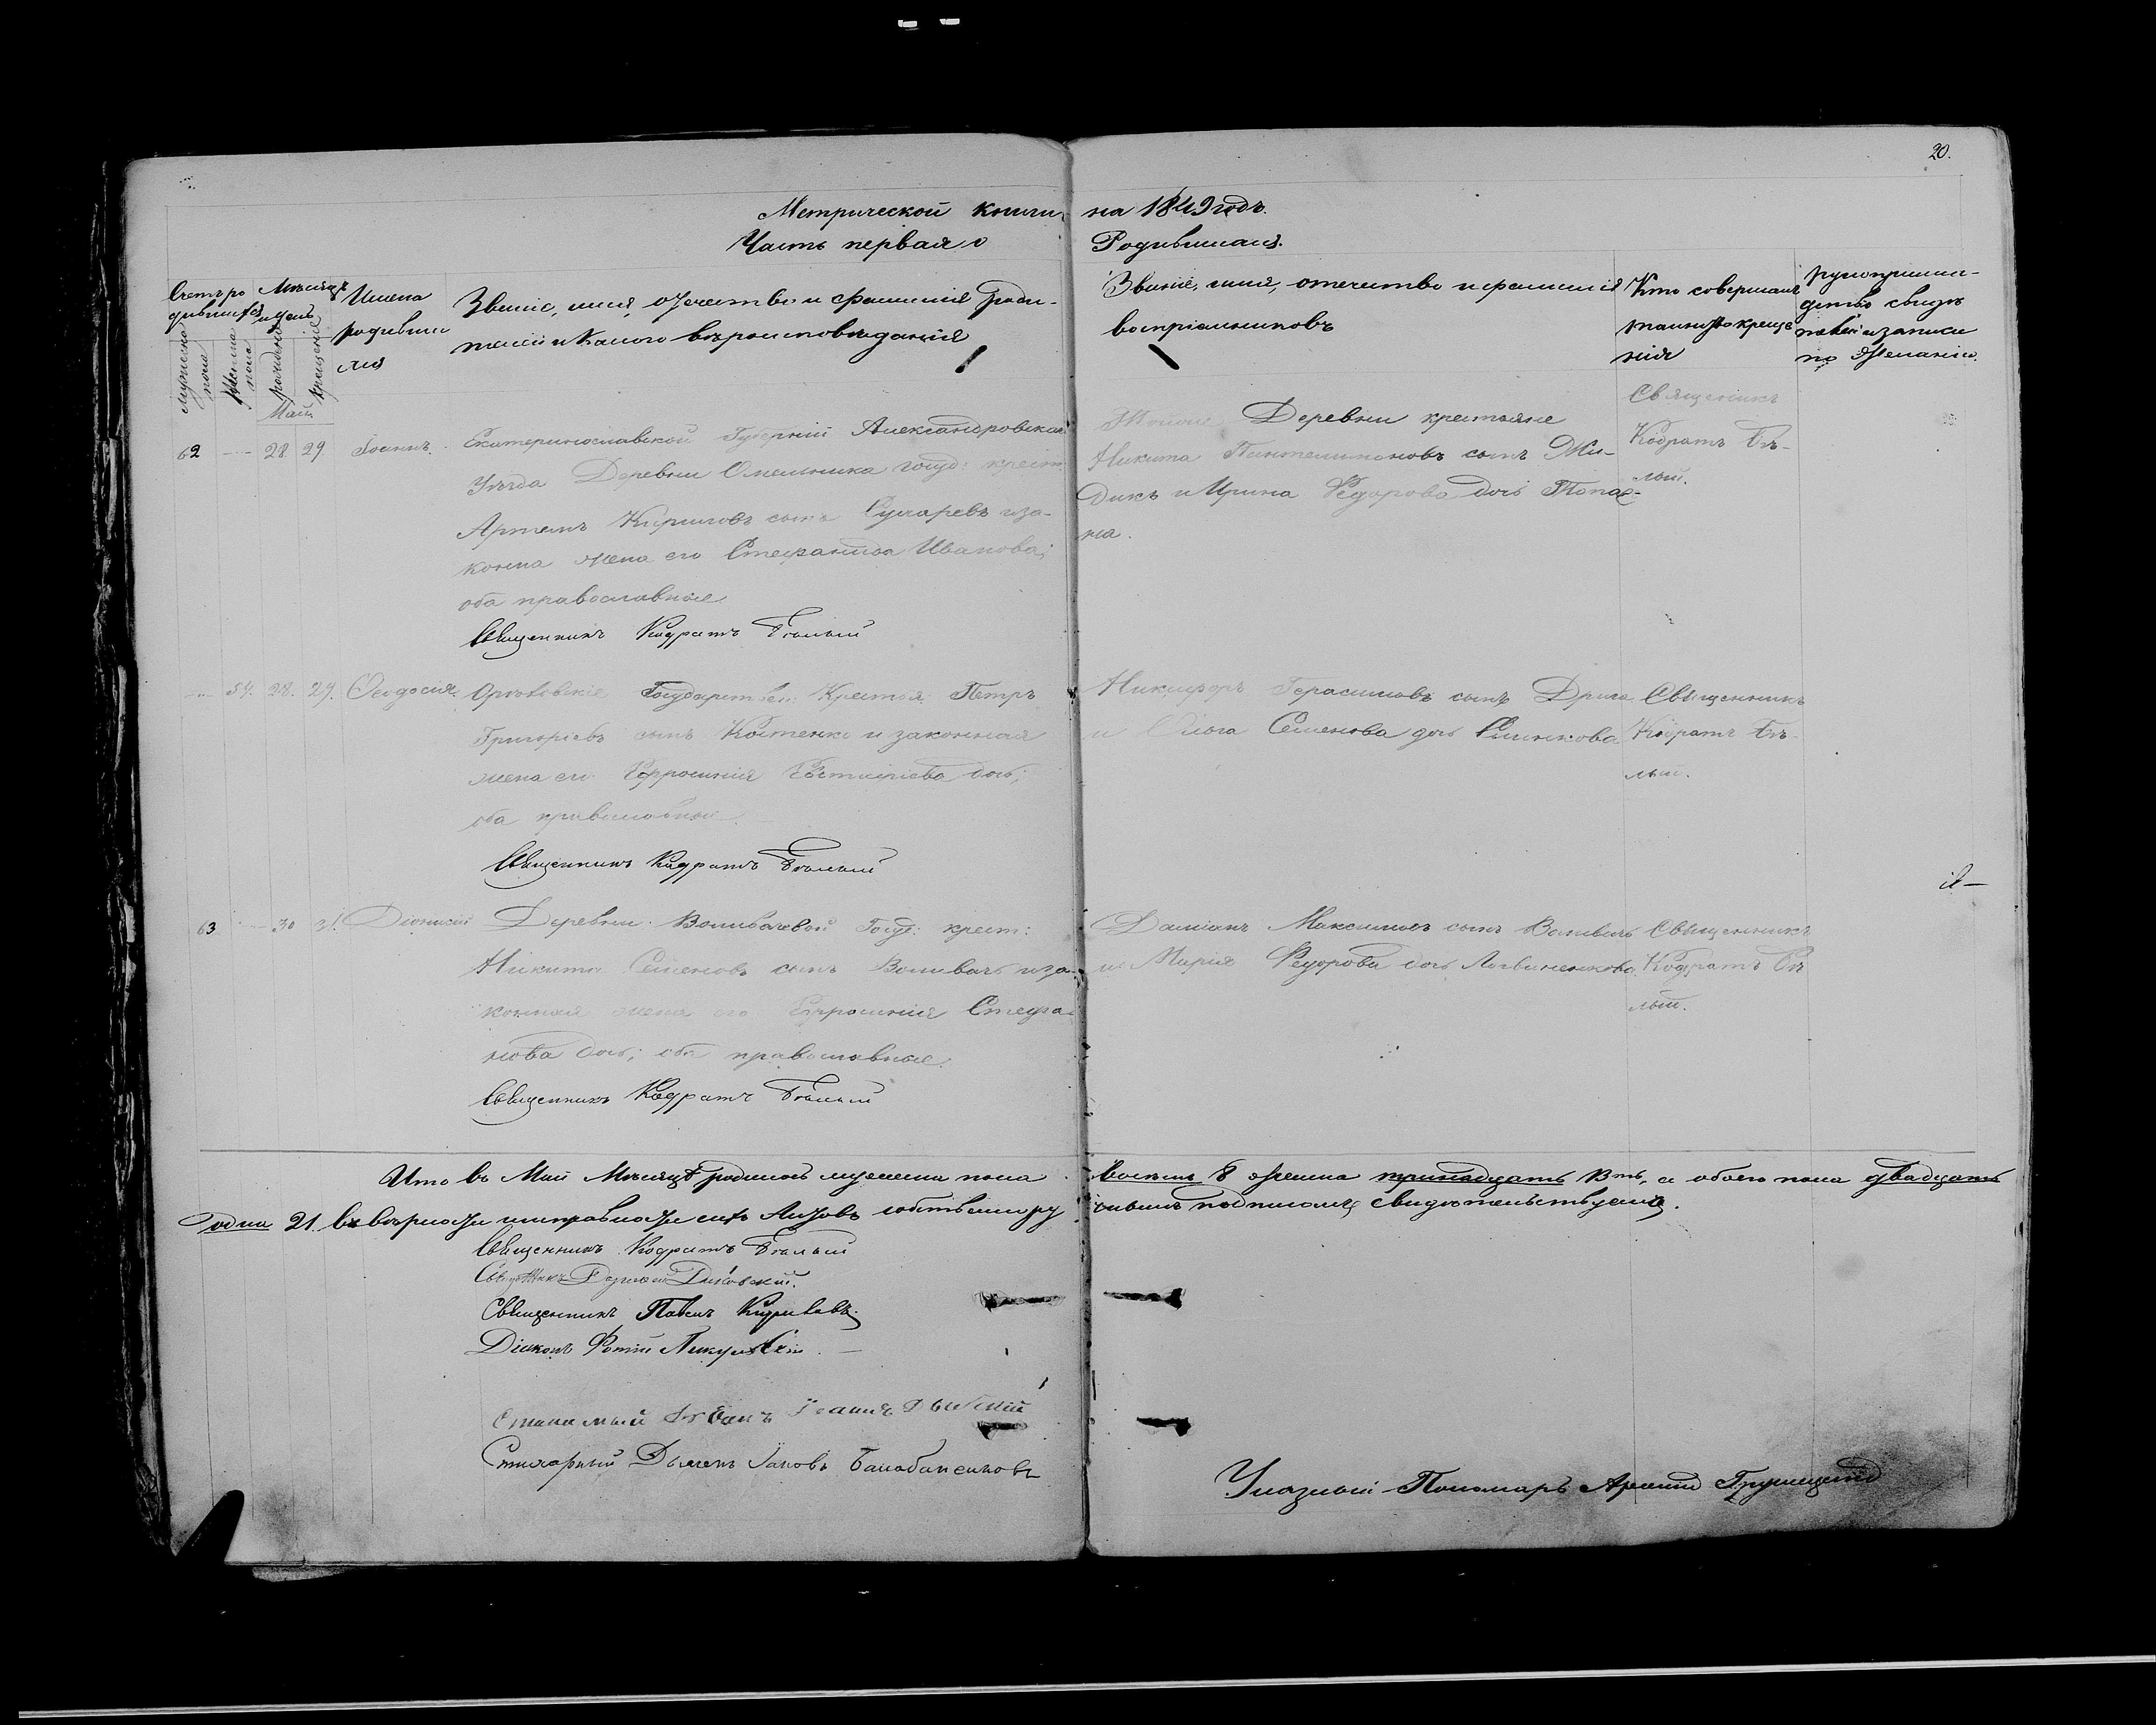 20.
Метрической книги на 1849 годъ.
Часть первая о Родившихся.
Счетъ родившихся
Мѣсяцъ и день
Имена родившихся
Званіе, имя, отечество и фамилія родителей и какого вѣроисповѣданія
Званіе, имя, отечество и фамилія воспріемниковъ
Кто совершалъ таинство крещенія
рукоприкладство свидѣтелей записи по желанію.
мужеска пола
женска пола
рожденія
крещенія
Май
62 28 29 Іоаннъ.
Екатеринославской Губерніи Александровскаго
Уѣзда Деревни Омельника госуд: крест:
Артемъ Кириловъ сынъ Сухаревъ и за-
конна жена его Стефанида Иванова;
оба православные
Священникъ Кодратъ Бѣлый
Деревни крестьяне
Никита Пантелимоновъ сынъ
и Ирина Федорова дочь
на.
Священникъ
Кодратъ Бѣ-
лый.
54. 28. 29. Ѳеодосія.
Орѣховскіе Государствен: Крестья: Петръ
Григоріевъ сынъ Костенко и законная
жена его Евфросинія Евстафіева дочь;
оба православные.
Священникъ Кодратъ Бѣлый
Никифоръ Герасимовъ сынъ Дрига
и Ольга Семенова дочь
Священникъ
Кодратъ Бѣ-
лый.
63 30 31 Діонисій
Деревни Воливачевой Госуд: крест:
Никита Семеновъ сынъ Воливачь и за-
конная жена его Евфросинія Стефа-
нова дочь; оба православные.
Священникъ Кодратъ Бѣлый
Даміанъ Максимовъ сынъ Воливачь
и Марія Федорова дочь Литвиненкова
Священникъ
Кодратъ Бѣ
лый.
Что въ Маѣ Мѣсяцѣ родилось мужеска пола восемь 8 женска тринадцать 13ть, а обоего пола двадцать
одна 21. въ вѣрности и исправности сихъ Актовъ собственнору чнымъ подписомъ свидѣтельствуемъ.
Священникъ Кодратъ Бѣлый
Священникъ
Священникъ Павелъ
Діаконъ Фотій
Іоаннъ
Стихарный Дьячекъ Іаковъ Балабаненковъ
Указный Пономарь Арсеній